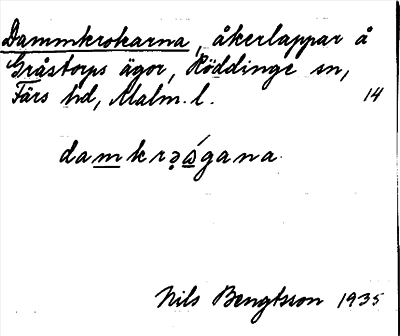 Dammkrokarna, åkerlappar å
Gråstorps ägor, Röddinge sn,
Färs hd, Malm. l. 14
damkrə󠄀ågana
Nils Bengtsson 1935